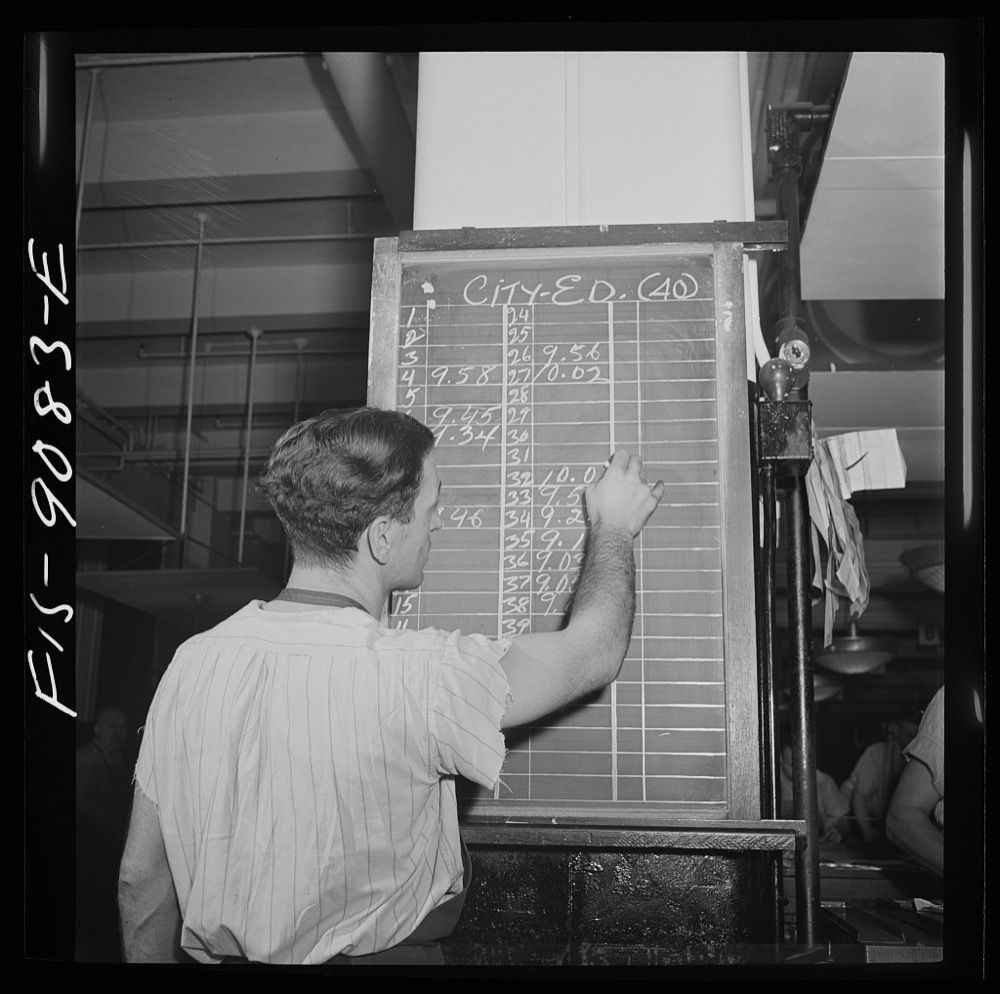 CITY-ED. (40)
1 24
2 25
3 26 9.56
4 9.58 27 10.02
5 28
9.45 29
9.34 30
31
32 10.0
33 9.5
46 34 9.2
35 9.1
36 9.03
37 9.0
15 38 9.
39
FIS-9083-E